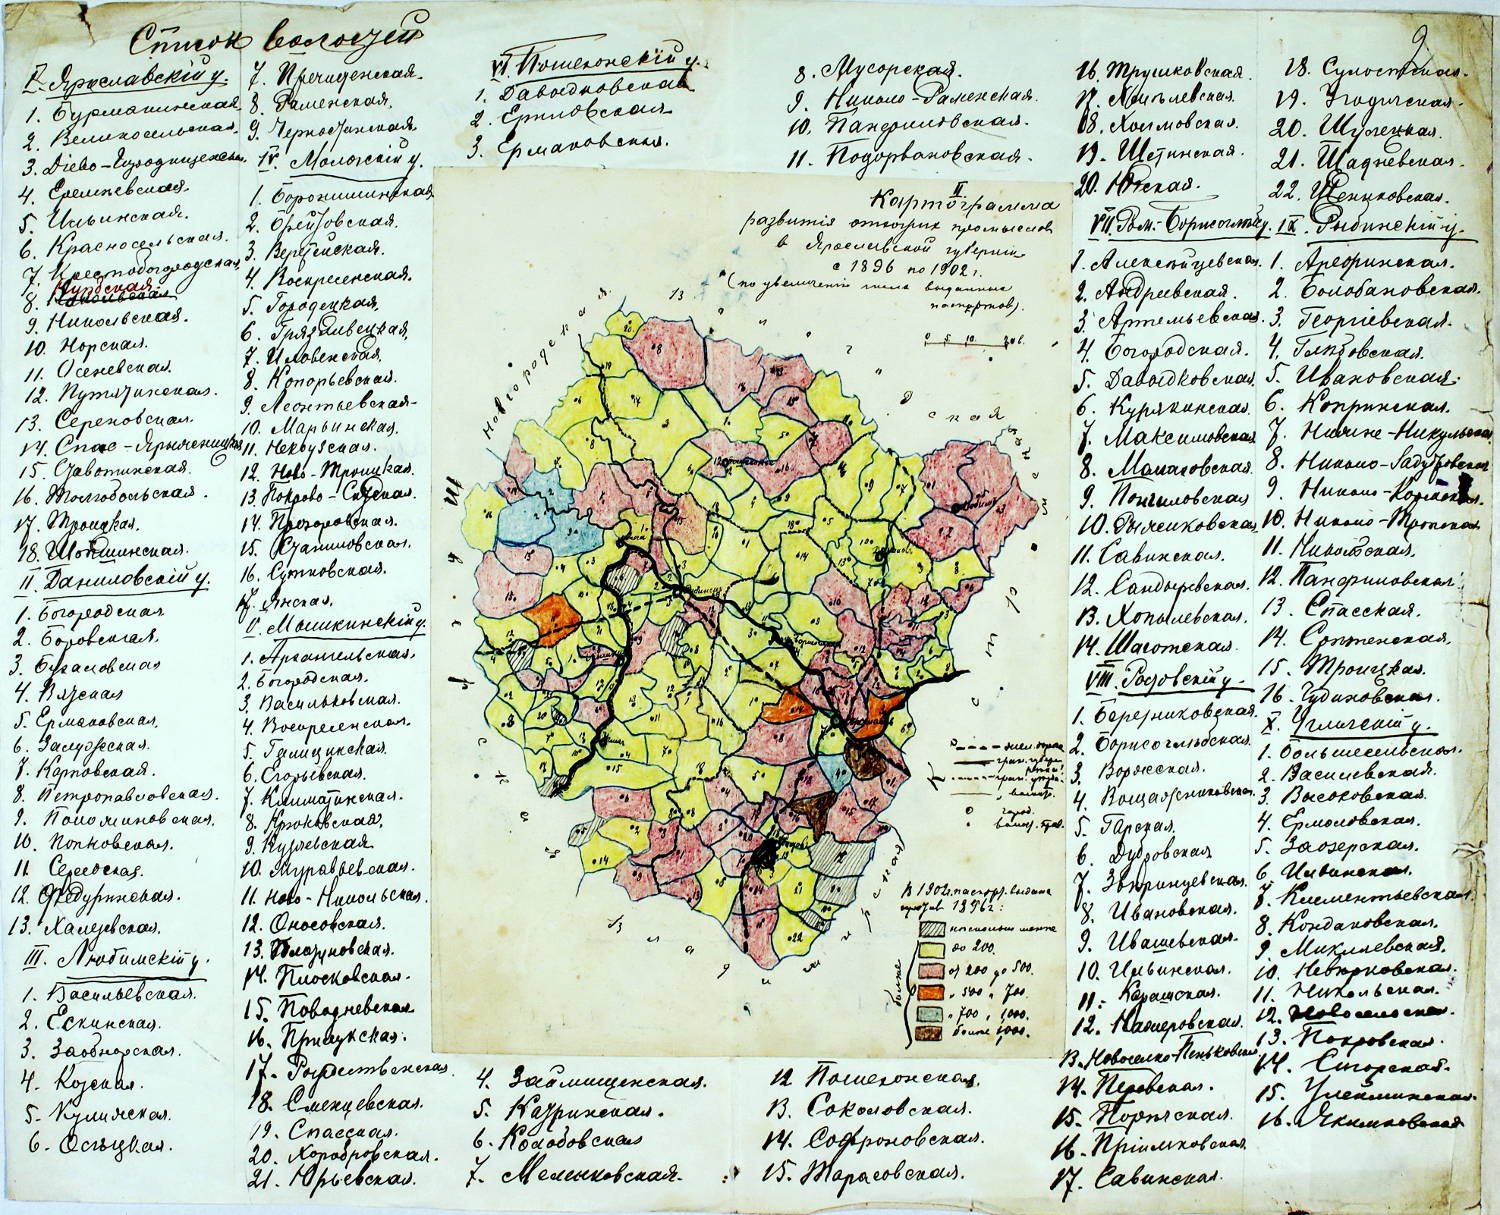 Список волостей
I. Ярославскій у.
1. Бурмакинская
2. Великосельская.
3. Діево-Городищенская
4. Еремѣевская.
5. Ильинская.
6. Красносельская.
7. Крестобогородская
8. Курбская
9. Никольская.
10. Норская.
11. Осеневская
12. Путятинская.
13. Сереновская.
14. Спас-
15. Ставотинская.
16. Толгобольская.
17. Троицкая.
18. Шопшинская.
II. Даниловскій у.
1. Богородская
2. Боровская.
3. Бухаловская
4. Вятская
5. Ермаковская.
6. Залужская.
7. Карповская.
8. Петропавловская.
9. Пономаровская.
10. Поповская.
11. Середская.
12. Ѳедуринская.
13. Халезевская.
III. Любимскій у.
1. Васильевская.
2. Ескинская.
3. Заобнорская.
4. Козская.
5. Кулижская.
6. Осѣцкая.
7. Пречистенская.
8. Раменская.
9. Чернозаводская.
IV. Мологскій у.
1. Боронишинская
2. Брейтовская.
3. Веретейская.
4. Воскресенская.
5. Городецкая,
6. Грязливецкая
7. Иловенская.
8. Копорьевская.
9. Леонтьевская.
10. Марьинская.
11. Некоузская.
12. Ново-Троицкая.
13 Покрово-Ситская.
14. Прозоровская.
15. Станиловская.
16. Сутковская.
17. Янская.
V. Мышкинскій у.
1. Архангельская.
2. Богородская.
3. Васильковская.
4. Воскресенская.
5. Галицинская.
6. Егорьевская.
7. Климатинская.
8. Крюковская.
9. Кузяевская
10. Муравьевская.
11. Ново-Никольская.
12. Оносовская.
13. Плазуновская.
14. Плосковская.
15. Поводневская
16. Прилукская.
17. Рождественская.
18. Сменцевская.
19. Спасская.
20. Хоробровская.
21. Юрьевская.
VI. Пошехонскій у.
1. Давыдковская
2. Ериловская
3. Ермаковская.
4. Займищенская.
5. Кастринская.
6. Колобовская
7. Меленковская.
8. Мусорская.
9. Николо-Раменская.
10. Панфиловская.
11. Подорвановская.
12 Пошехонская.
13. Соколовская.
14. Софроновская.
15. Тарасовская.
16. Трушковская.
17. Хмѣлевская.
18. Холмовская.
19. Щетинская.
20. Южская.
VII. Ром.-Борисоглѣб. у.
1. Алексѣйцевская.
2. Андреевская.
3. Артемьевская.
4. Богородская.
5. Давыдковская.
6. Курякинская.
7. Максимовская
8. Малаховская.
9. Понгиловская
10. Рыжиковская.
11. Савинская.
12. Сандыревская.
13. Хопылевская.
14. Шаготская.
VIII. Ростовскій у.
1. Березниковская.
2. Борисоглѣбская.
3. Воржская.
4. Вощажниковская.
5. Гарская.
6. Дубровская
7. Зверинцевская.
8. Ивановская.
9. Ивашевская.
10. Ильинская.
11. Карашская.
12. Кацперовская.
13. Новоселко-Пеньковская
14. Перовская.
15. Порѣчская.
16. Пріимковская
17. Савинская.
18. Сулостская.
19. Угодичская.
20. Шулецкая.
21. Щадневская.
22. Щениковская.
IX. Рыбинскій у.
1. Арефинская.
2. Болобановская.
3. Георгіевская.
4. Глѣбовская.
5. Ивановская.
6. Копринская.
7. Нижне-Никульская.
8. Николо-
9. Николо-Кормская.
10. Николо-Тропская
11. Никольская.
12. Панфиловская.
13. Спасская.
14. Сретенская.
15. Троицкая.
16. Чудиновская.
X. Угличскій у.
1. Большесельская.
2. Василевская.
3. Высоковская.
4. Ермоловская.
5. Заозерская.
6. Ильинская.
7. Климентьевская.
8. Кондаковская.
9. Микляевская.
10. Неверковская.
11. Никольская.
12. Новосельская.
13. Покровская.
14. Сигорская.
15. Улейминская.
16. Якимовская
9
II
Картограмма
развитія отхожихъ промысловъ
в Ярославской губерніи
с 1896 по 1902 г.
(по увеличенію числа выданныхъ
паспортовъ).
0 5 10 20 в.
Новгородская
Вологодская
Костромская
Владимирская
Тверская
жел. дорога
гран. губерн.
гран. уѣзд.
" волост.
город.
волост. прав.
К 1902 г. паспорт. выдано
против 1896 г:
нѣсколько менѣе
до 200.
от 200 до 500.
" 500 " 700.
" 700 " 1000.
более 1000.
более